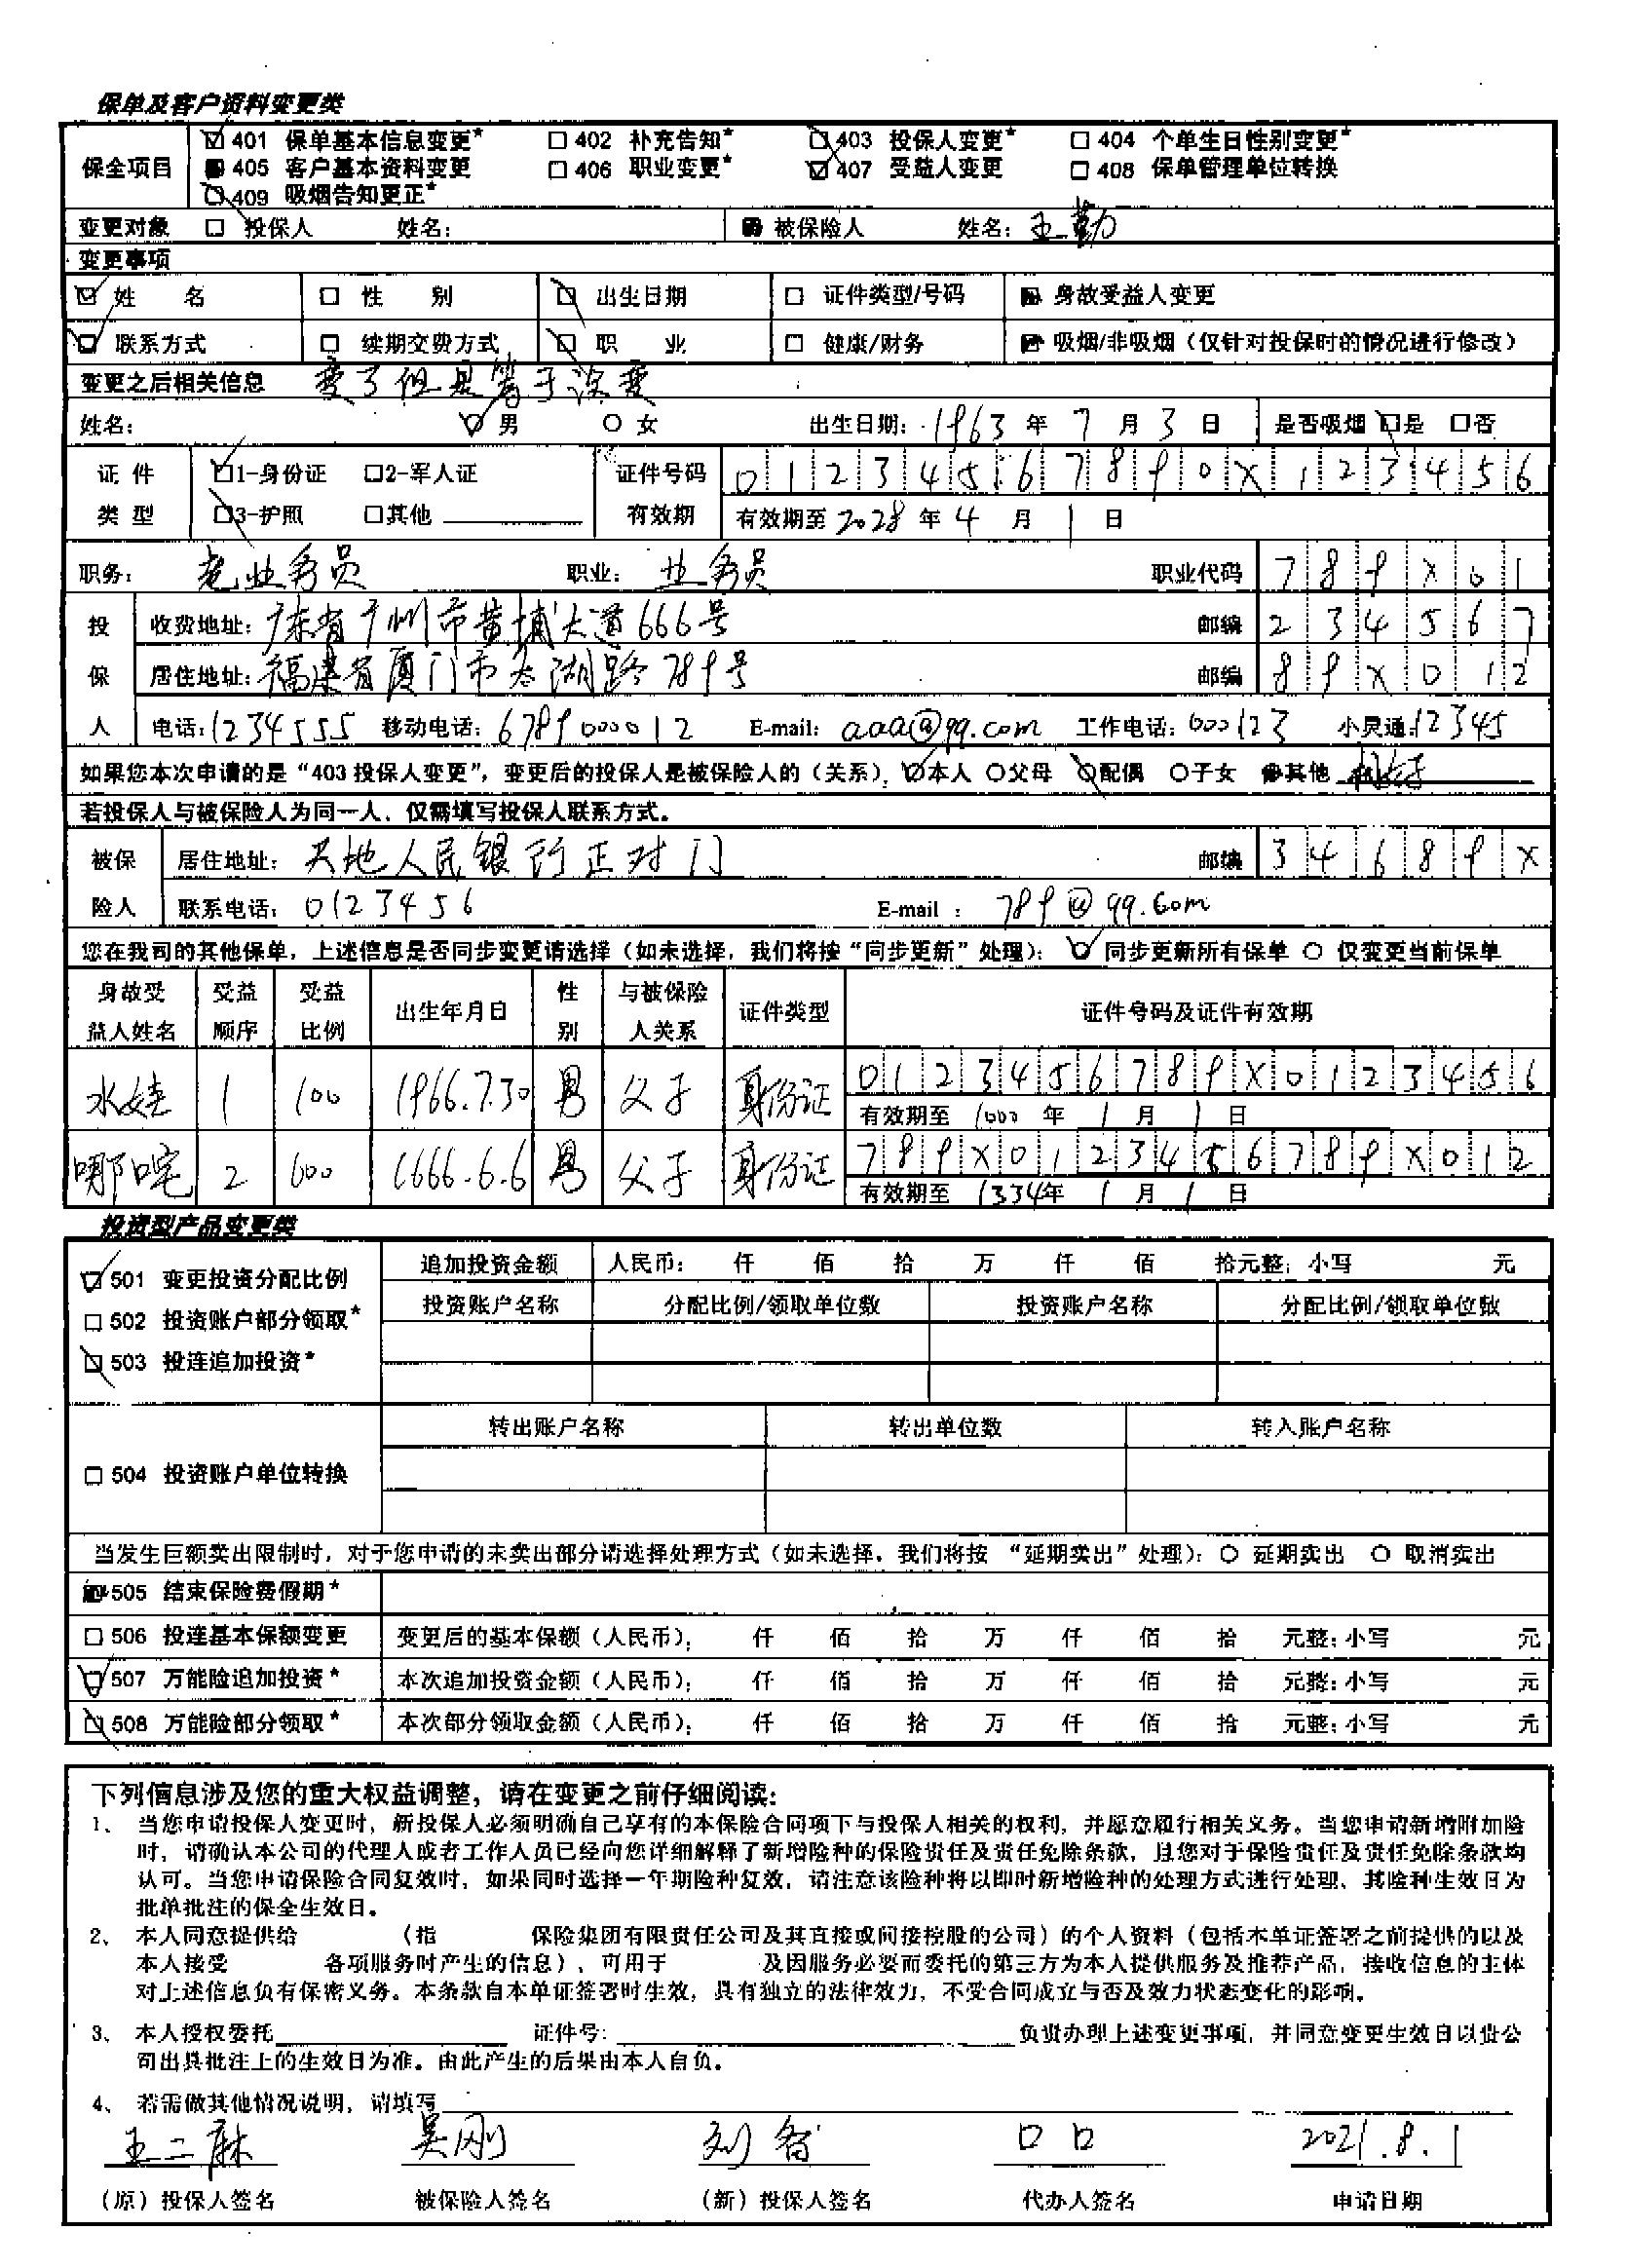 保单及客户资料变更类
保全项目 ☑401 保单基本信息变更* ☐402 补充告知* ☑403 投保人变更* ☐404 个单生日性别变更*
☑405 客户基本资料变更 ☐406 职业变更* ☑407 受益人变更 ☐408 保单管理单位转换
☑409 吸烟告知更正*
变更对象 ☐ 投保人 姓名: ☑ 被保险人 姓名: 王勤
变更事项
☑ 姓 名 ☐ 性 别 ☑ 出生日期 ☐ 证件类型/号码 ☑ 身故受益人变更
☑ 联系方式 ☐ 续期交费方式 ☑ 职 业 ☐ 健康/财务 ☑ 吸烟/非吸烟（仅针对投保时的情况进行修改）
变更之后相关信息 变了但是等于没变
姓名: ☑男 ○女 出生日期: 1963 年 7 月 3 日 是否吸烟 ☑是 ☐否
证件 ☑1-身份证 ☐2-军人证 证件号码 01234567890X123456
类型 ☑3-护照 ☐其他 有效期 有效期至 2028 年 4 月 1 日
职务: 老业务员 职业: 业务员 职业代码 789X01
投 收费地址: 广东省广州市黄埔大道666号 邮编 234567
保 居住地址: 福建省厦门市太湖路789号 邮编 89X012
人 电话: 1234555 移动电话: 6789000012 E-mail: aaa@qq.com 工作电话: 000123 小灵通: 12345
如果您本次申请的是“403 投保人变更”，变更后的投保人是被保险人的（关系）: ☑本人 ○父母 ☑配偶 ○子女 ☑其他
若投保人与被保险人为同一人、仅需填写投保人联系方式。
被保 居住地址: 天地人民银行正对门 邮编 34689X
险人 联系电话: 0123456 E-mail : 789@qq.com
您在我司的其他保单，上述信息是否同步变更请选择（如未选择，我们将按“同步更新”处理）: ☑ 同步更新所有保单 ○ 仅变更当前保单
身故受益人姓名 受益顺序 受益比例 出生年月日 性别 与被保险人关系 证件类型 证件号码及证件有效期
水娃 1 100 1966.7.30 男 父子 身份证 0123456789X0123456
有效期至 1000 年 1 月 1 日
哪吒 2 600 1666.6.6 男 父子 身份证 789X0123456789X012
有效期至 1334年 1 月 1 日
投资型产品变更类
☑501 变更投资分配比例 追加投资金额 人民币: 仟 佰 拾 万 仟 佰 拾元整; 小写 元
☐502 投资账户部分领取* 投资账户名称 分配比例/领取单位数 投资账户名称 分配比例/领取单位数
☑503 投连追加投资*
转出账户名称 转出单位数 转入账户名称
☐504 投资账户单位转换
当发生巨额卖出限制时，对于您申请的未卖出部分请选择处理方式（如未选择，我们将按 “延期卖出”处理）: ○ 延期卖出 ○ 取消卖出
☑505 结束保险费假期*
☐506 投连基本保额变更 变更后的基本保额（人民币）: 仟 佰 拾 万 仟 佰 拾 元整; 小写 元
☑507 万能险追加投资* 本次追加投资金额（人民币）: 仟 佰 拾 万 仟 佰 拾 元整; 小写 元
☑508 万能险部分领取* 本次部分领取金额（人民币）: 仟 佰 拾 万 仟 佰 拾 元整; 小写 元
下列信息涉及您的重大权益调整，请在变更之前仔细阅读:
1、 当您申请投保人变更时，新投保人必须明确自己享有的本保险合同项下与投保人相关的权利，并愿意履行相关义务。当您申请新增附加险
时，请确认本公司的代理人或者工作人员已经向您详细解释了新增险种的保险责任及责任免除条款，且您对于保险责任及责任免除条款均
认可。当您申请保险合同复效时，如果同时选择一年期险种复效，请注意该险种将以即时新增险种的处理方式进行处理，其险种生效日为
批单批注的保全生效日。
2、 本人同意提供给 （指 保险集团有限责任公司及其直接或间接控股的公司）的个人资料（包括本单证签署之前提供的以及
本人接受 各项服务时产生的信息），可用于 及因服务必要而委托的第三方为本人提供服务及推荐产品，接收信息的主体
对上述信息负有保密义务。本条款自本单证签署时生效，具有独立的法律效力，不受合同成立与否及效力状态变化的影响。
3、 本人授权委托 证件号: 负责办理上述变更事项，并同意变更生效日以贵公
司出具批注上的生效日为准。由此产生的后果由本人自负。
4、 若需做其他情况说明，请填写
王二麻 吴刚 刘备 口口 2021.8.1
（原）投保人签名 被保险人签名 （新）投保人签名 代办人签名 申请日期